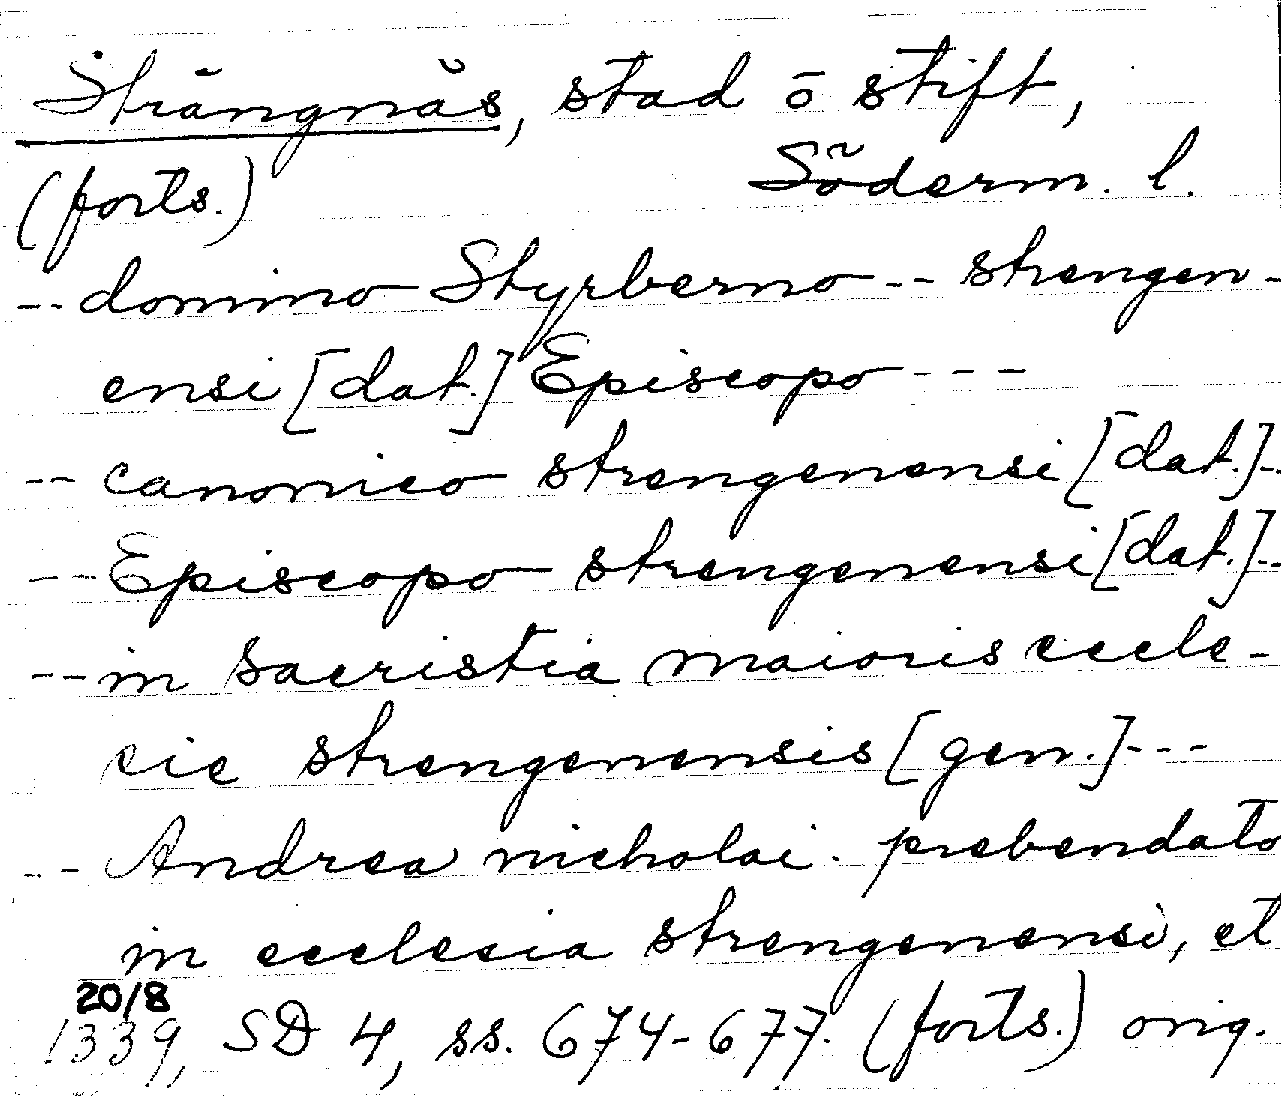 Strängnäs, stad o stift,
(forts.) Söderm. l.
-- domino Styrberno -- strengen-
ensi [dat.] Episcopo ---
-- canonico strengenensi [dat.] --
-- Episcopo strengenensi [dat.] --
-- in sacristia maioris eccle-
cie strengenensis [gen.] ---
-- Andrea nicholai. prebendato
in ecclesia strengenensi, et
20/8
1339, SD 4, ss. 674-677. (forts.) orig.